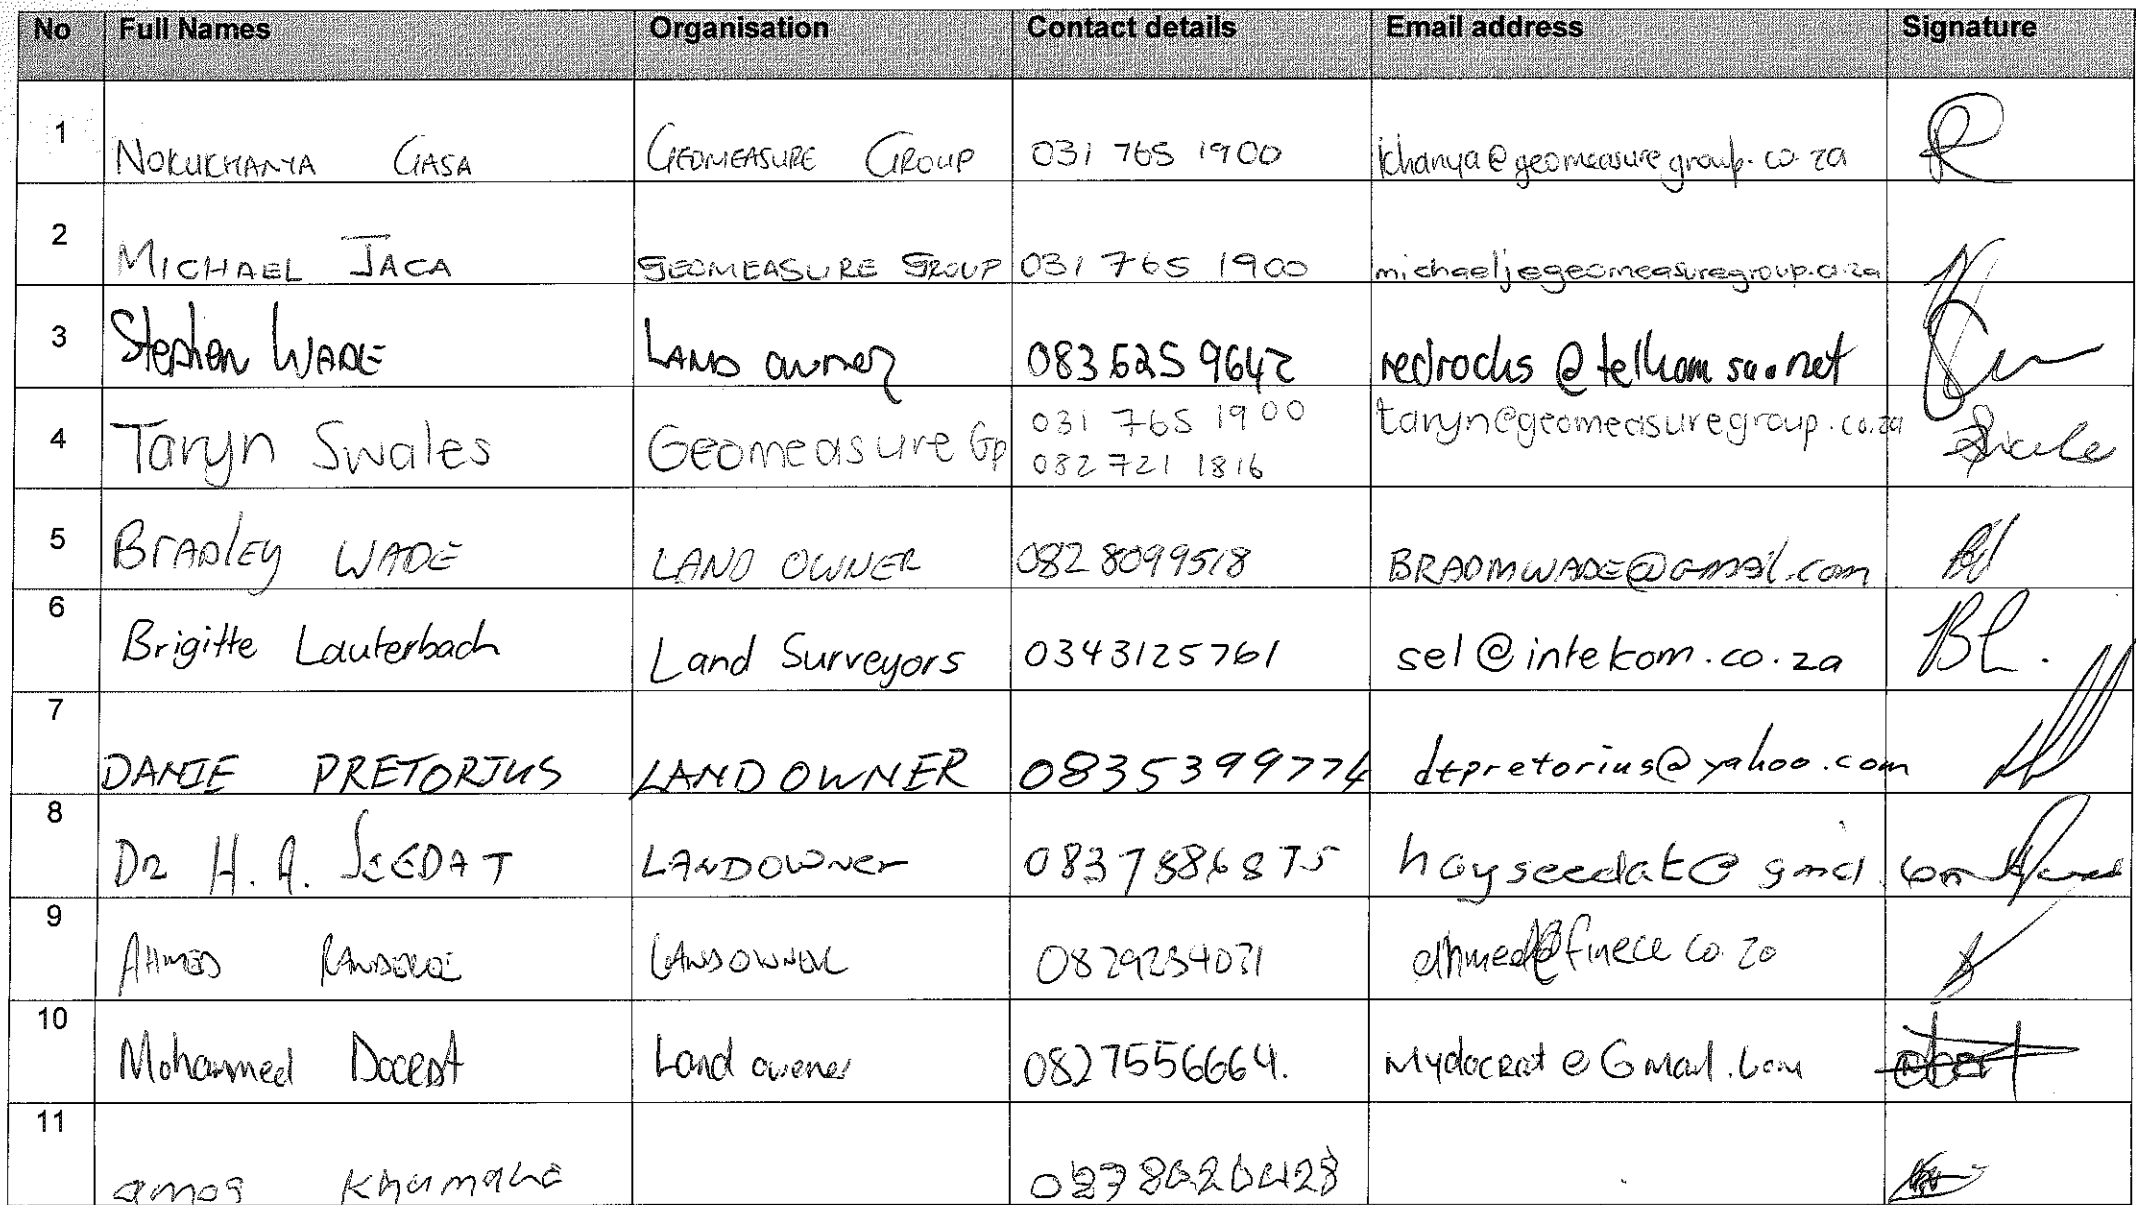 No Full Names Organisation Contact details Email address Signature
1 NOKUKHANYA GASA GEOMEASURE GROUP 031 765 1900 khanya@geomeasuregroup.co.za
2 MICHAEL JACA GEOMEASURE GROUP 031 765 1900 michaelj@geomeasuregroup.co.za
3 Stephen WADE LAND owner 083 625 9642 redrocks@telkomsa.net
4 Taryn Swales Geomeasure Gp 031 765 1900 taryn@geomeasuregroup.co.za
082 721 1816
5 BrADlEy WADE LAND OWNER 082 8099518 BRADMWADE@GMAil.com
6 Brigitte Lauterbach Land Surveyors 0343125761 sel@intekom.co.za
7 DANIE PRETORIUS LANDOWNER 0835399774 dtpretorius@yahoo.com
8 DR H. A. SEEDAT LANDOWNer 0837886875 hayseedat@
9 AHMED LANDOWNER
10 Mohammed Docrat Land owener 0827556664. Mydocrat@Gmail.com
11 amos Khumalo